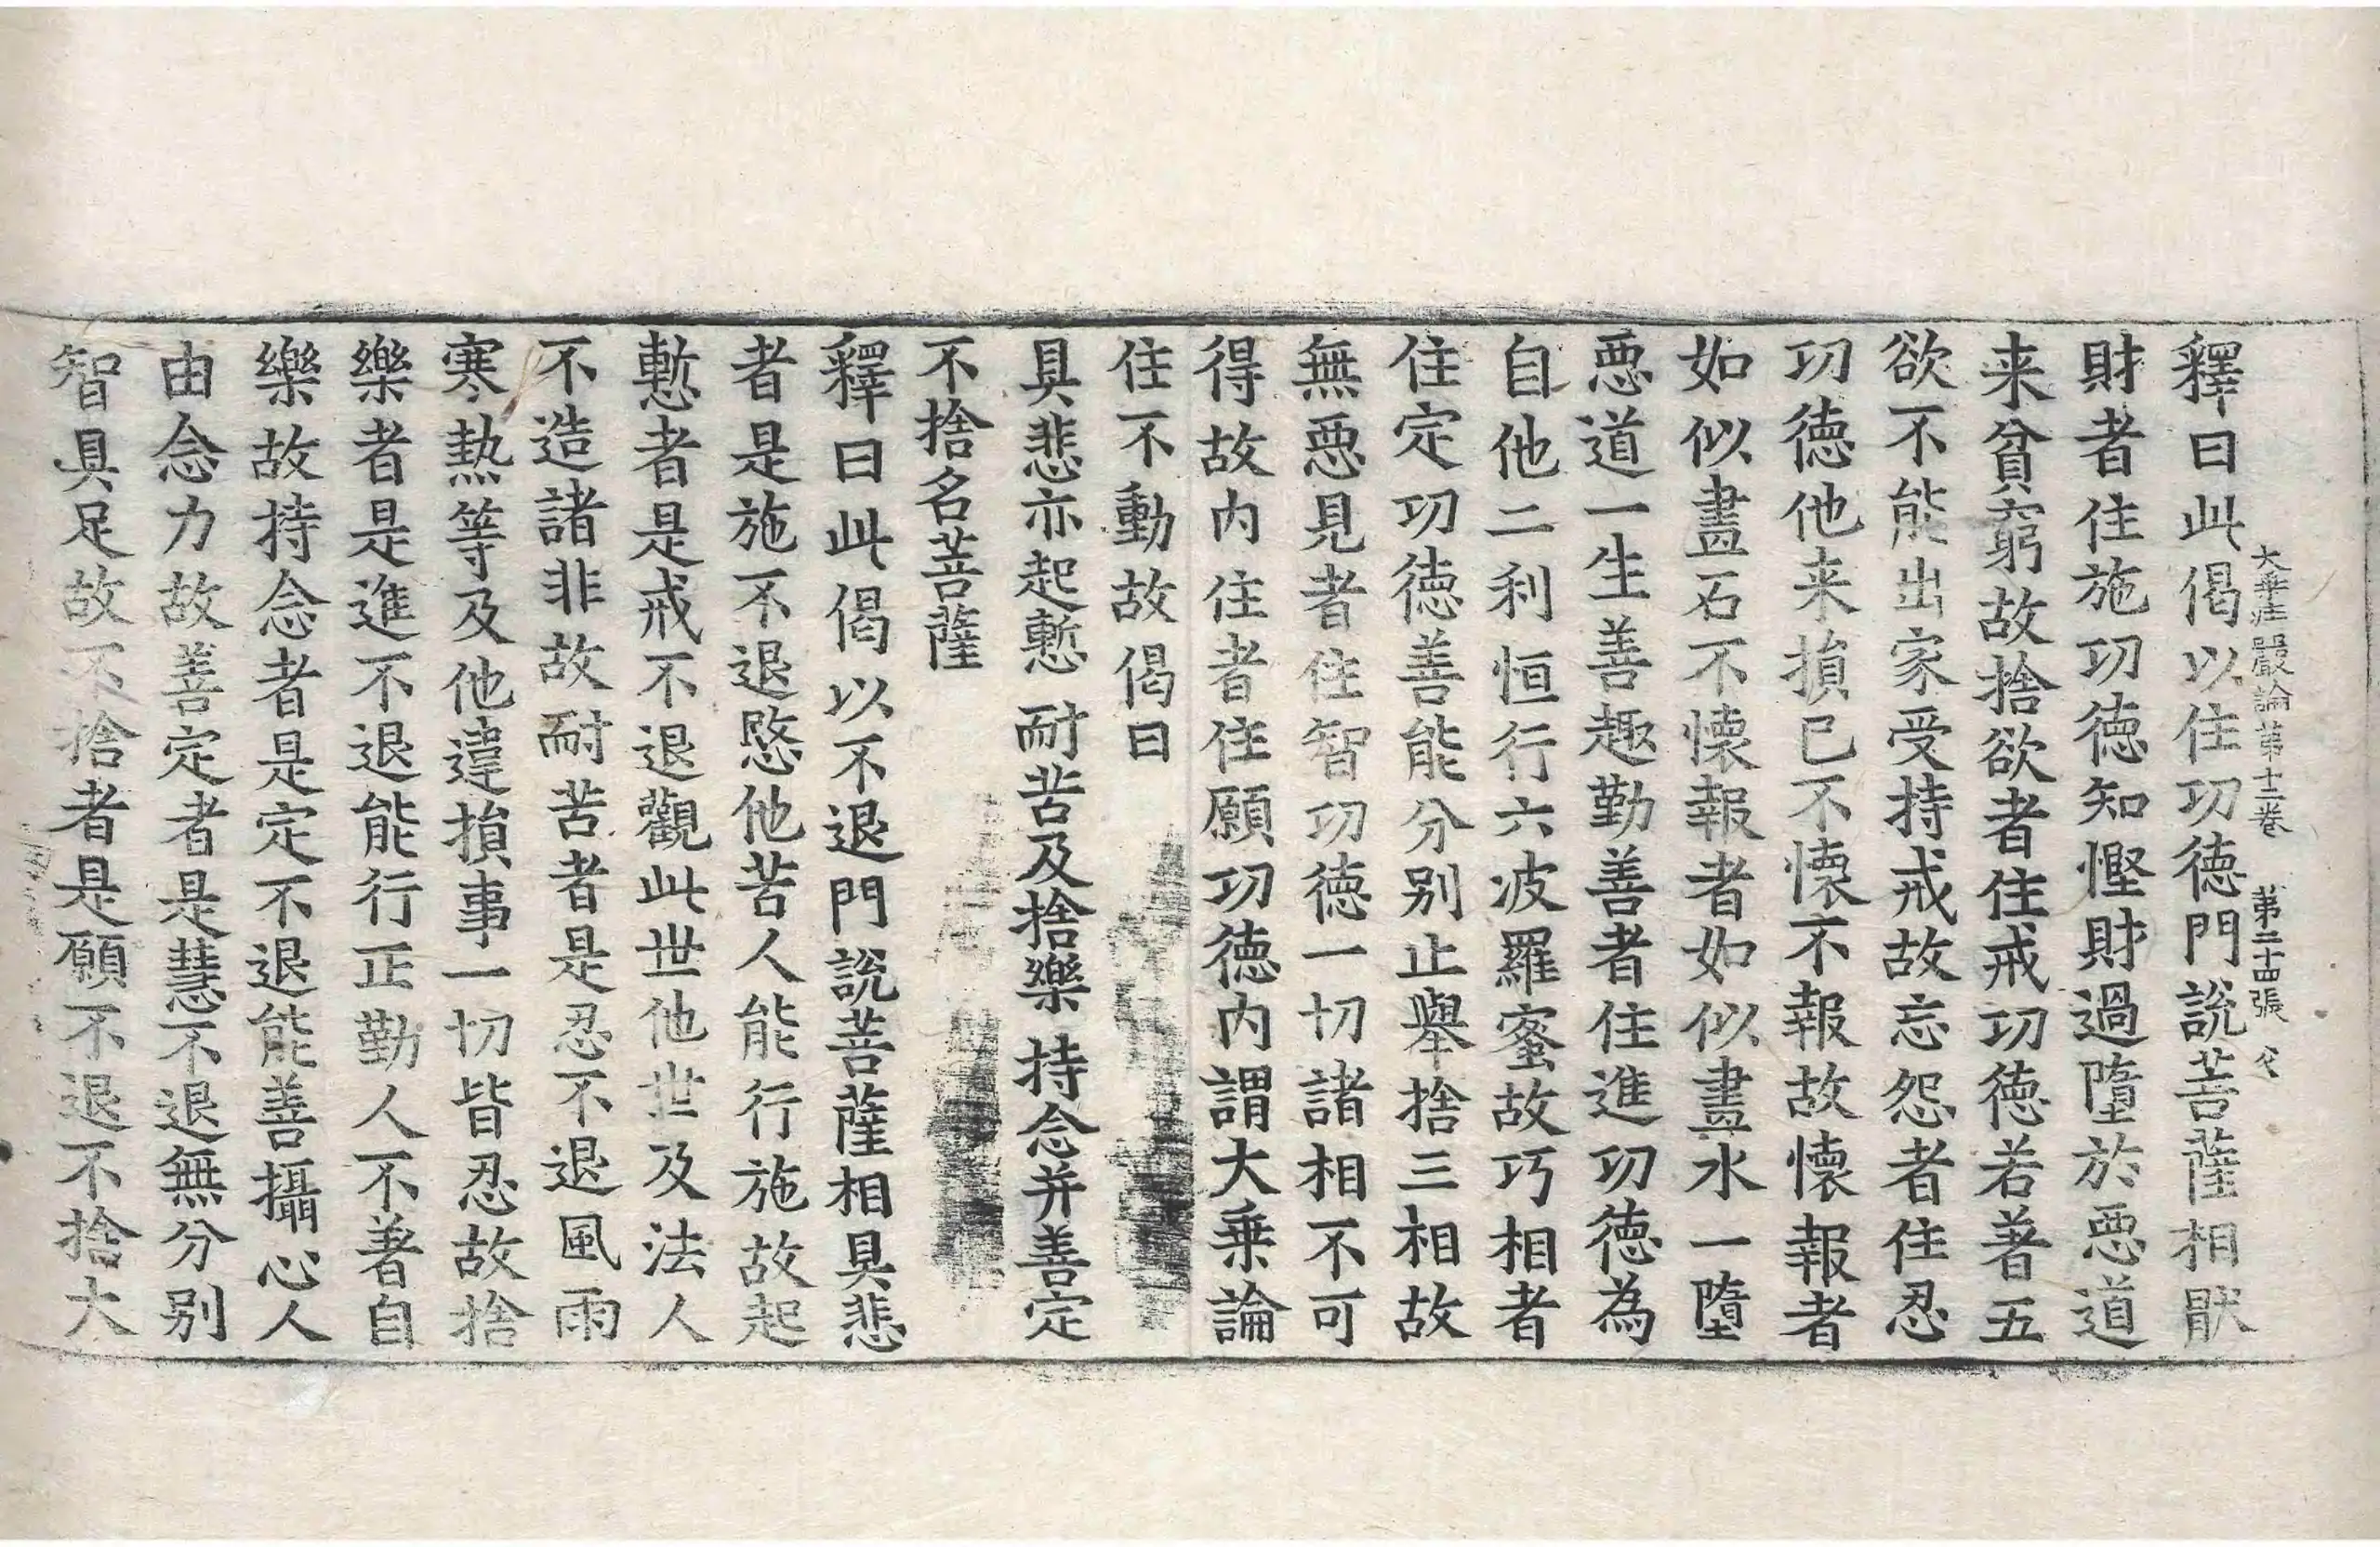 大乗庄嚴論第十三卷　第二十四張
釋曰此偈以住功德門說菩薩相猒
財者住施功德知慳財過墮於惡道
来貧窮故捨欲者住戒功德若著五
欲不能出家受持戒故忘怨者住忍
功德他来損已不懷不報故懷報者
如似畫石不懷報者如似畫水一墮
惡道一生善趣勤善者住進功德為
自他二利恒行六波羅蜜故巧相者
住定功德善能分別止舉捨三相故
無惡見者住智功德一切諸相不可
得故内住者住願功德内謂大乗論
住不動故偈曰
具悲亦起慙　耐苦及捨樂　持念并善定
不捨名菩薩
釋曰此偈以不退門說菩薩相具悲
者是施不退愍他苦人能行施故起
慙者是戒不退觀此世他世及法人
不造諸非故耐苦者是忍不退風雨
寒熱等及他違損事一切皆忍故捨
樂者是進不退能行正勤人不著自
樂故持念者是定不退能善攝心人
由念力故善定者是慧不退無分別
智具足故不捨者是願不退不捨大